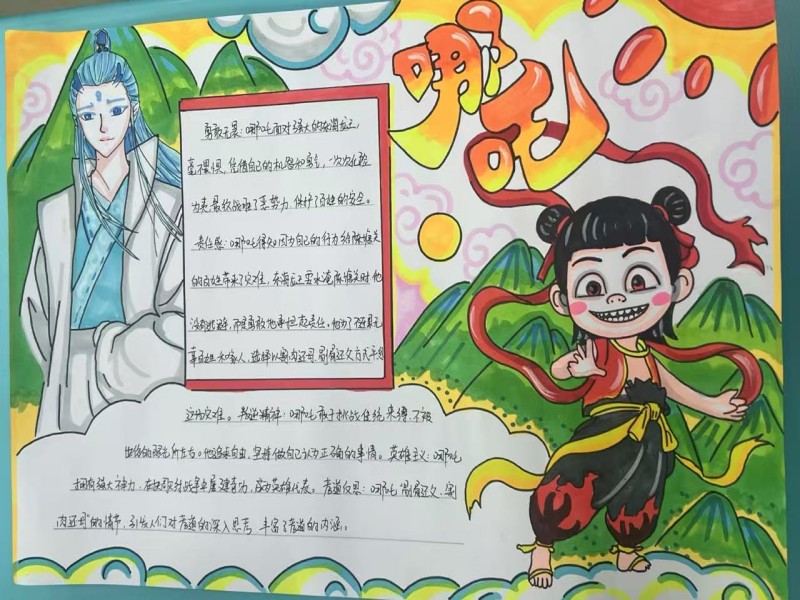 哪吒
勇敢无畏:哪吒面对强大的东海龙王,
毫不畏惧,凭借自己的机智和勇气,一次次化险
为夷最终战胜了恶势力,保护了百姓的安全。
责任感:哪吒得知因为自己的行为给陈塘关
的百姓带来了灾难,东海龙王要水淹陈塘关时他
没有逃避,而是勇敢地承担起责任,他为了不连累无
辜百姓和家人,选择以割肉还母、剔骨还父方式平息
这场灾难。叛逆精神:哪吒敢于挑战传统束缚,不被
世俗的眼光所左右。他追求自由,坚持做自己认为正确的事情。英雄主义:哪吒
拥有强大神力,在
战争中屡建奇功,成为英雄代表。孝道反思:哪吒“剔骨还父、割
肉还母”的情节,引发人们对孝道的深入思考,丰富了孝道的内涵。